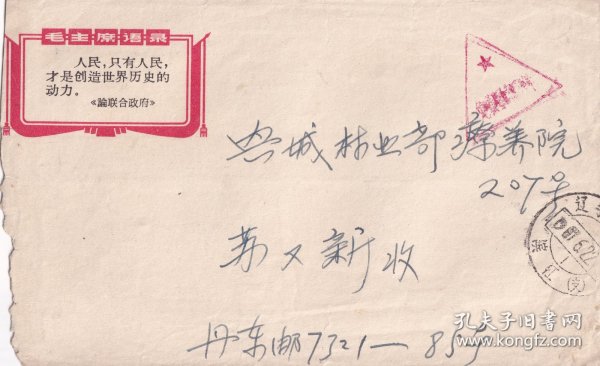 毛主席语录
人民，只有人民，
才是创造世界历史的
动力。
《論联合政府》
城林业部療养院
207号
苏又新收
丹东邮7321—85号
辽
孔夫子旧书网
www.kongfz.com